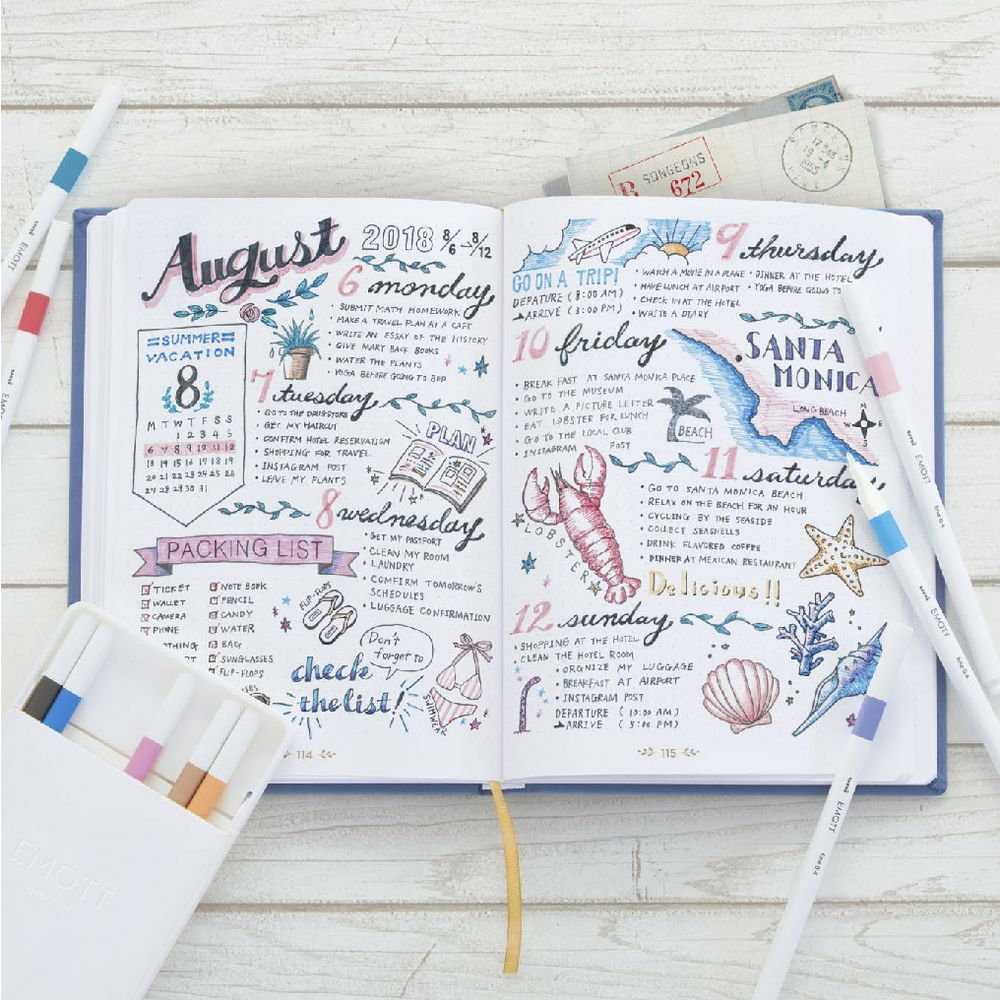 SONGEONS
R
672
August
2018 8/6→8/12
SUMMER
VACATION
8
M T W T F S S
1 2 3 4 5
6 7 8 9 10 11 12
13 14 15 16 17 18 19
20 21 22 23 24 25 26
27 28 29 30 31
6 monday
• SUBMIT MATH HOMEWORK
• MAKE A TRAVEL PLAN AT A CAFE
• WRITE AN ESSAY OF THE HISTORY
• GIVE MARY BACK BOOKS
• WATER THE PLANTS
• YOGA BEFORE GOING TO BED
7 tuesday
• GO TO THE DRUGSTORE
• GET MY HAIRCUT
• CONFIRM HOTEL RESERVATION
• SHOPPING FOR TRAVEL
• INSTAGRAM POST
• LEAVE MY PLANTS
PLAN
8 wednesday
• GET MY PASSPORT
• CLEAN MY ROOM
• LAUNDRY
• COMFIRM TOMORROW'S
SCHEDULES
• LUGGAGE CONFIRMATION
PACKING LIST
TICKET
WALLET
CAMERA
PHONE
NOTE BOOK
PENCIL
CANDY
WATER
BAG
SUNGLASSES
FLIP-FLOPS
FLIP-FLOPS
Don't
forget to
check
the list!
SWIMWEAR
114
GO ON A TRIP!
DEPATURE (8:00 AM)
ARRIVE (3:00 PM)
9 thursday
• WATCH A MOVIE IN A PLANE
• HAVE LUNCH AT AIRPORT
• CHECK IN AT THE HOTEL
• WRITE A DIARY
• DINNER AT THE HOTEL
• YOGA BEFORE GOING TO
10 friday
• BREAK FAST AT SANTA MONICA PLACE
• GO TO THE MUSEUM
• WRITE A PICTURE LETTER
• EAT LOBSTER FOR LUNCH
• GO TO THE LOCAL CLUB
• INSTAGRAM POST
BEACH
SANTA
MONICA
LONG BEACH
N
LOBSTER
11 saturday
• GO TO SANTA MONICA BEACH
• RELAX ON THE BEACH FOR AN HOUR
• CYCLING BY THE SEASIDE
• COLLECT SEASHELLS
• DRINK FLAVORED COFFEE
• DINNER AT MEXICAN RESTAURANT
Delicious!!
12 sunday
• SHOPPING AT THE HOTEL
• CLEAN THE HOTEL ROOM
• ORGNIZE MY LUGGAGE
• BREAKFAST AT AIRPORT
• INSTAGRAM POST
DEPARTURE (10:00 AM)
ARRIVE (5:00 PM)
115
uni EMOTT
uni EMOTT
EMOTT fine 0.4
uni EMOTT fine 0.4
uni EMOTT fine 0.4
EMOTT